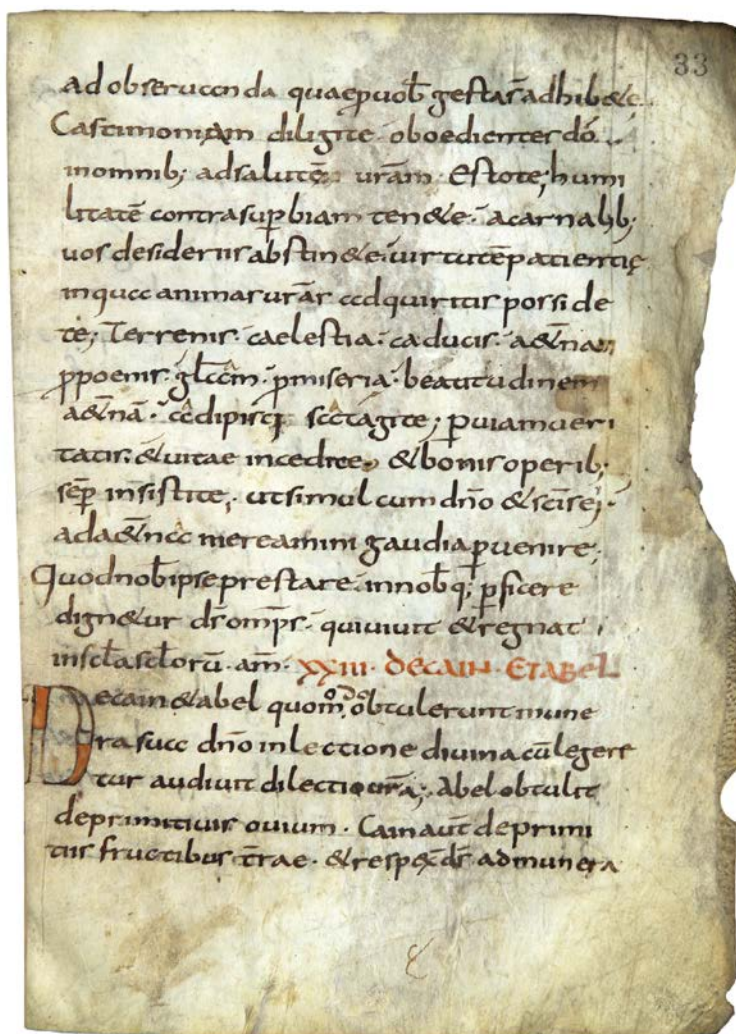 33
ad observanda quae p̄ vob̄ gesta s̄ adhibete
Castimoniam diligite · oboedientes dō
in omnib; ad salutē vr̄am · Estote; humi
litatē contra sup̄biam ten&e · a carnalib;
vos desideriis abstin&e · virtutē patientię
in qua animas vr̄as adquiritis posside
te; Terrenis · caelestia · caducis · a&̄na
p̄ poenis · gl̄am · p̄ miseria · beatitudinem
a&̄nā · adipisci satagite; p̄ viam veri
tatis · & vitae incedite · & bonis operib;
sēp insistite; ut simul cum dn̄o & sc̄is ei;
ad a&̄na mereamini gaudia p̄venire;
Quod nob̄ ipse prestare in nob̄q; p̄ficere
dign&ur ds̄ omp̄s · qui vivit & regnat
in scl̄a scl̄orū · am̄ · XXIII · DE CAIN · ET ABEL
De cain & abel quom̊d̊ obtulerunt mune
ra sua dn̄o in lectione divina cū legere
tur audivit dilectio vr̄a; Abel obtulit
de primitivis ovium · Cain aut̄ de primi
tiis fructibus t̄rae · & resp&̄x ds̄ ad munera